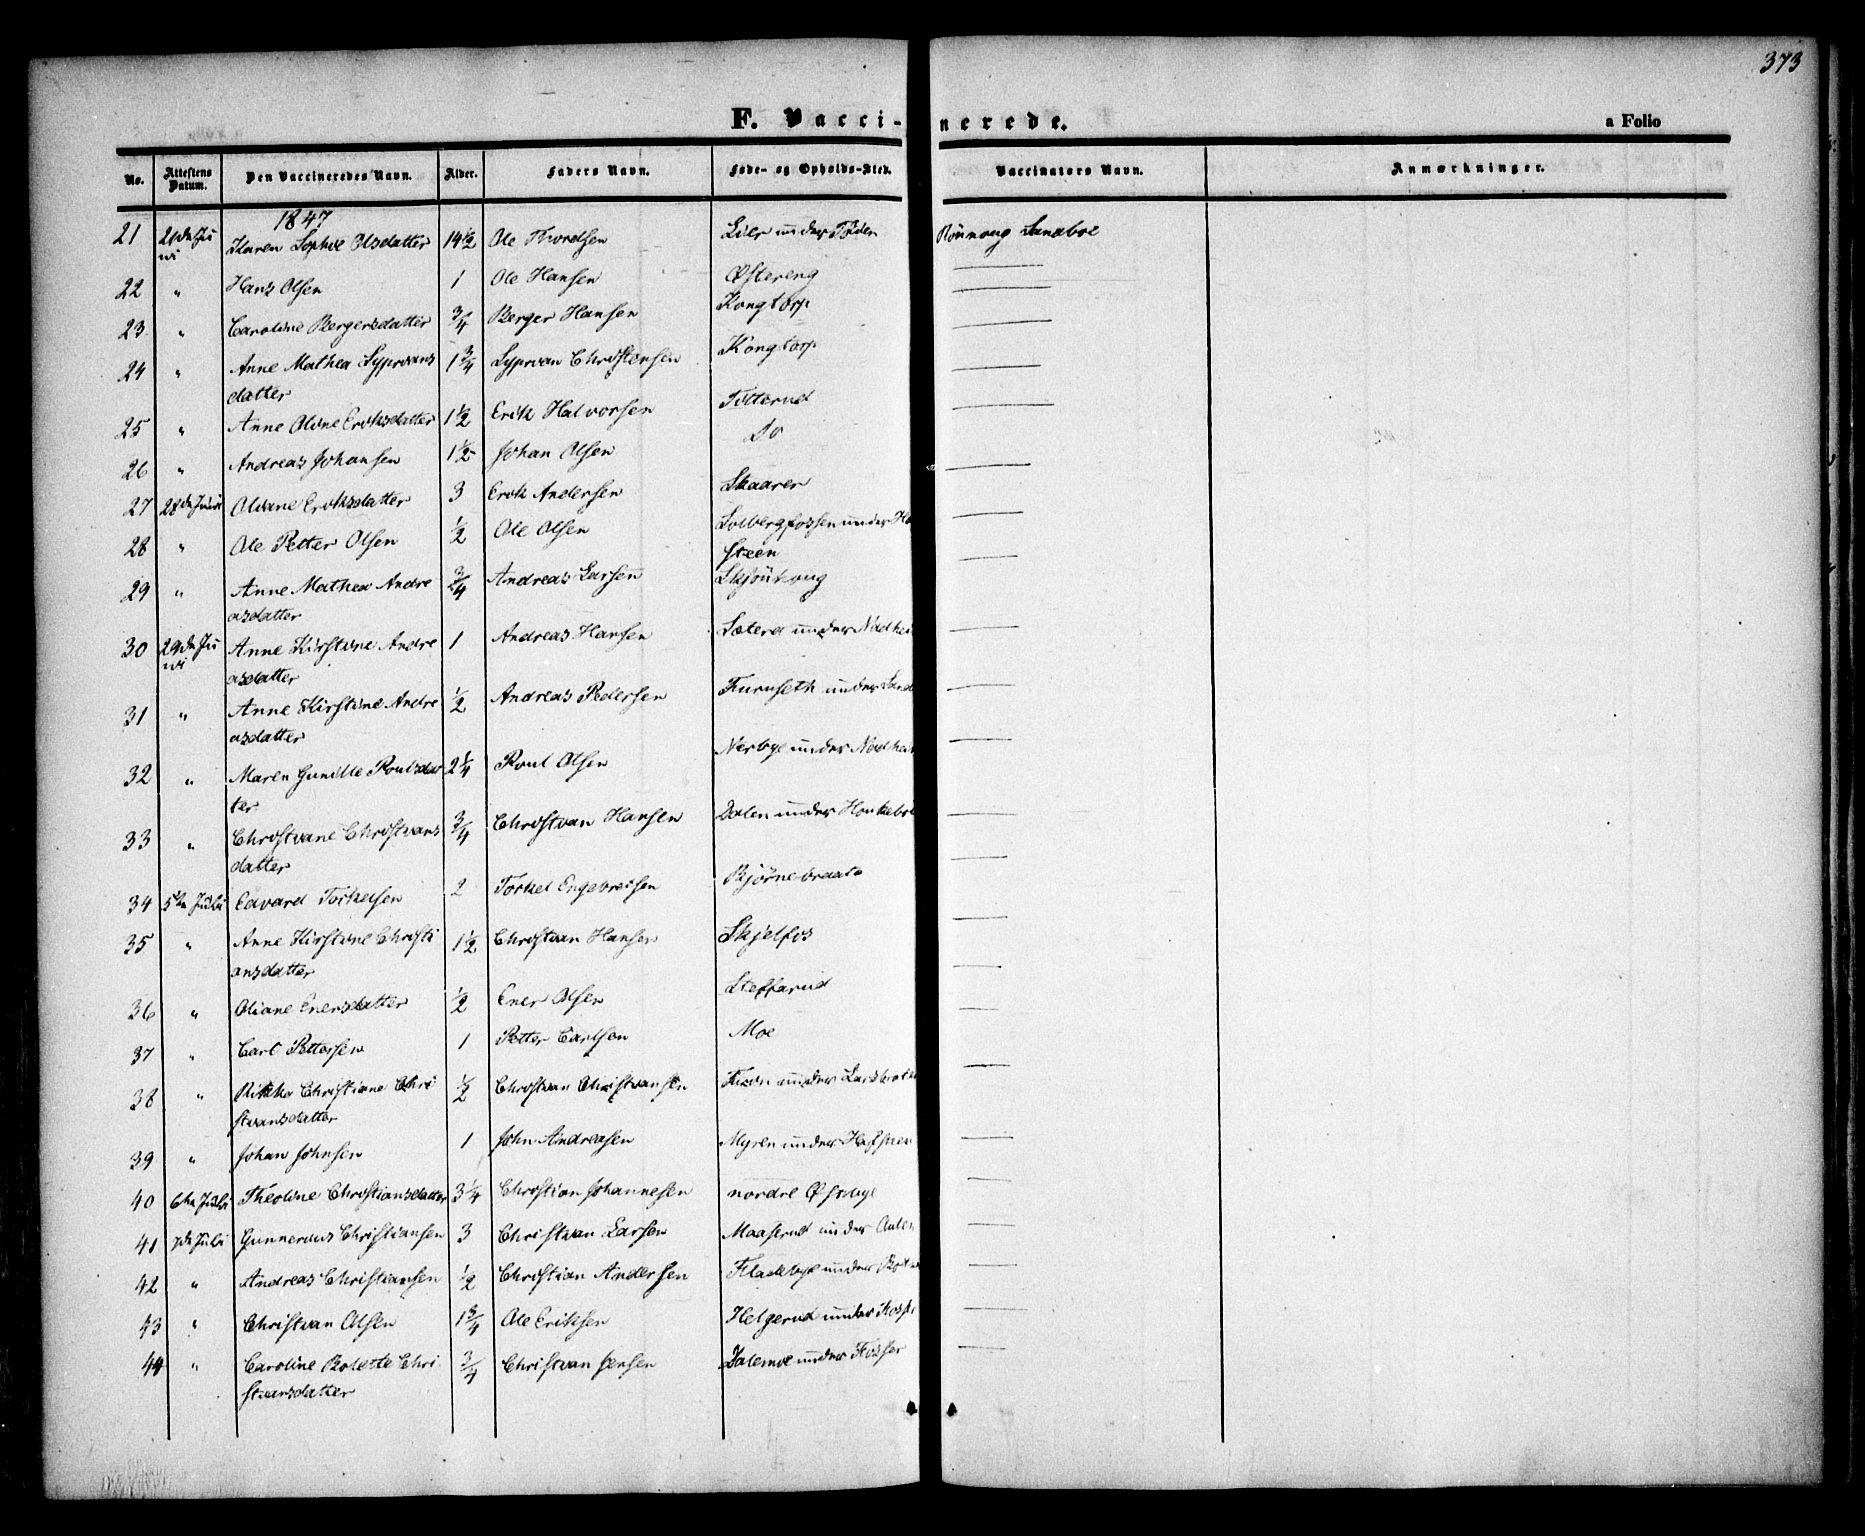 373
F. Vaccinerede.
a Folio
No. Attestens Datum. Den Vaccineredes Navn. Alder. Faders Navn. Føde- og Opholds-Sted. Vaccinators Navn. Anmærkninger.
1847
21 21de Juni Karen Sophie Olsdatter 14 1/2 Ole Thordsen Lier under
22 " Hans Olsen 1 Ole Hansen Østereng
23 " Caroline Bergersdatter 3/4 Berger Hansen Kongtorp
24 " Anne Mathea Syprians 1 3/4 Syprian Christensen Kongtorp
datter
25 " Anne Oline Eriksdatter 1 1/2 Erik Halvorsen Totterud
26 " Andreas Johansen 1 1/2 Johan Olsen Do
27 28de Juni Oliane Eriksdatter 3 Erik Andersen Skaarer
28 " Ole Petter Olsen 1/2 Ole Olsen Solbergfossen under
steen
29 " Anne Mathea Andre 3/4 Andreas Larsen
asdatter
30 29de Juni Anne Kirstine Andre 1 Andreas Hansen under
asdatter
31 " Anne Kirstine Andre 1/2 Andreas Pedersen Furuseth under
asdatter
32 " Maren Gunille Poulsdat 2 1/4 Poul Olsen Nerbye under
ter
33 " Christiane Christians 3/4 Christian Hansen Dalen under
datter
34 5te Juli Edvard Torkelsen 2 Torkel Engebretsen Bjørnebraate
35 " Anne Kirstine Christi 1 1/2 Christian Hansen Skjelfos
ansdatter
36 " Oliane Enersdatter 1/2 Ener Olsen Steffarud
37 " Carl Pettersen 1 Petter Carlsen Moe
38 " Christiane Chri 1/2 Christian Christiansen under
stiansdatter
39 " Johan Johnsen 1 John Andreasen Myren under
40 6te Juli Theoline Christiansdatter 3 1/4 Christian Johannesen nordre Østbye
41 7de Juli Gunnerius Christiansen 3 Christian Larsen Maaserud under
42 " Andreas Christiansen 1/2 Christian Andersen Fladebye under
43 " Christian Olsen 1 3/4 Ole Eriksen Helgerud under
44 " Caroline Bolette Chri 3/4 Christian Jensen Dalemoe under Fosser
stiansdatter